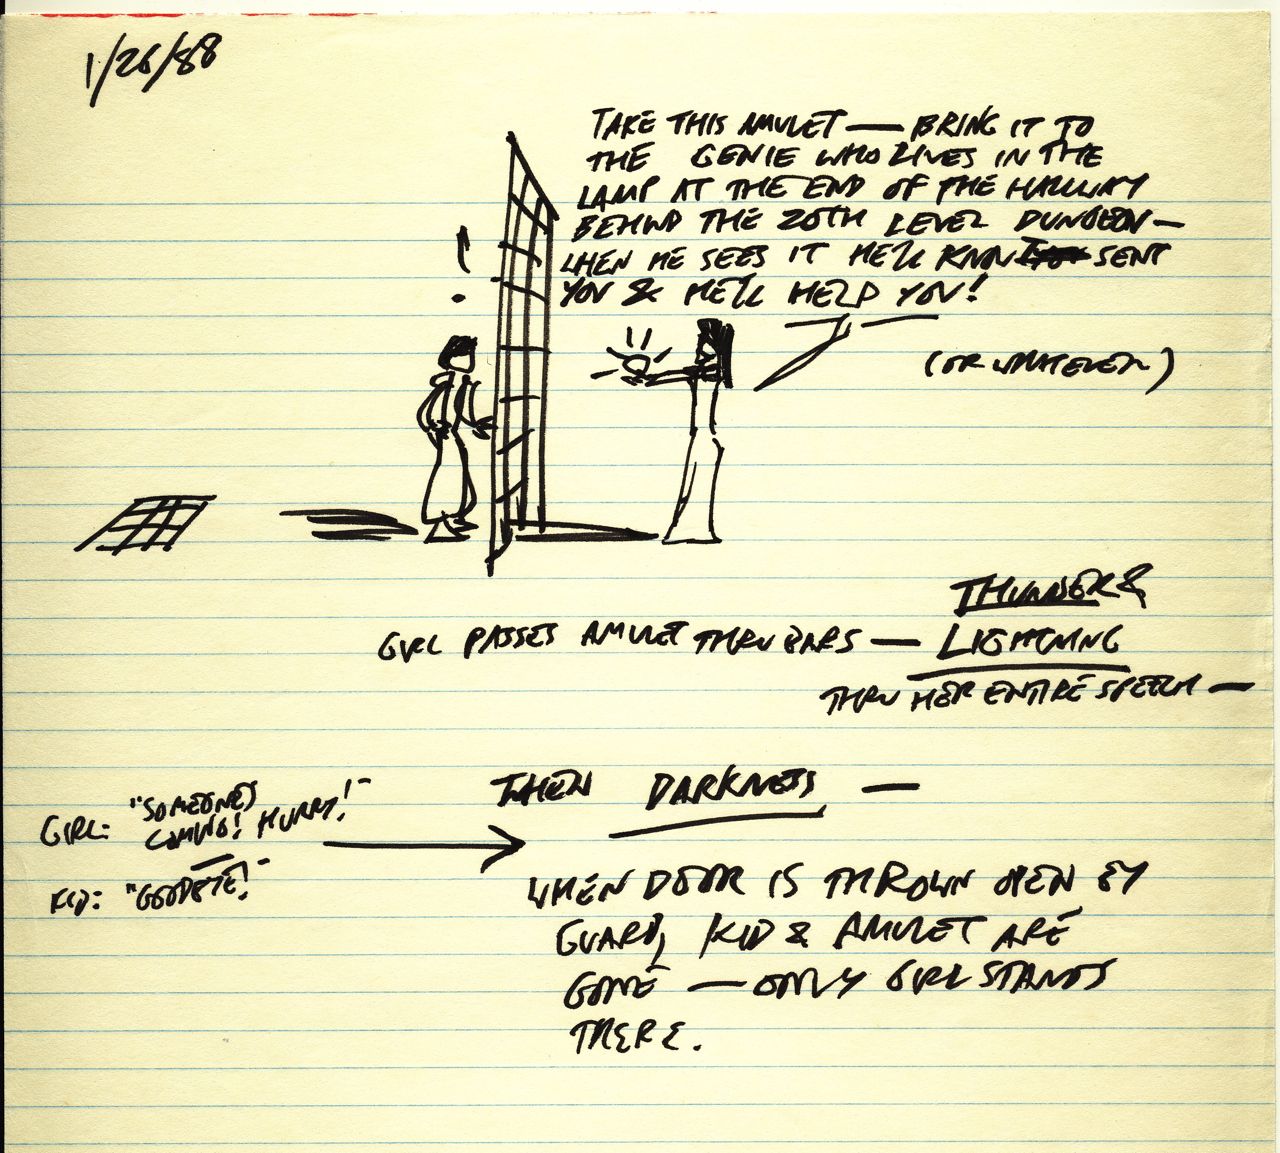 1/26/88
TAKE THIS AMULET — BRING IT TO
THE GENIE WHO LIVES IN THE
LAMP AT THE END OF THE HALLWAY
BEHIND THE 20TH LEVEL DUNGEON —
WHEN HE SEES IT HE'LL KNOW I SENT
YOU & HE'LL HELP YOU!
(OR WHATEVER)
!
GIRL PASSES AMULET THRU BARS — THUNDER &
LIGHTNING
THRU HER ENTIRE SPEECH —
THEN DARKNESS —
GIRL: "SOMEONE'S
COMING! HURRY!"
KID: "GOODBYE!"
WHEN DOOR IS THROWN OPEN BY
GUARD, KID & AMULET ARE
GONE — ONLY GIRL STANDS
THERE.